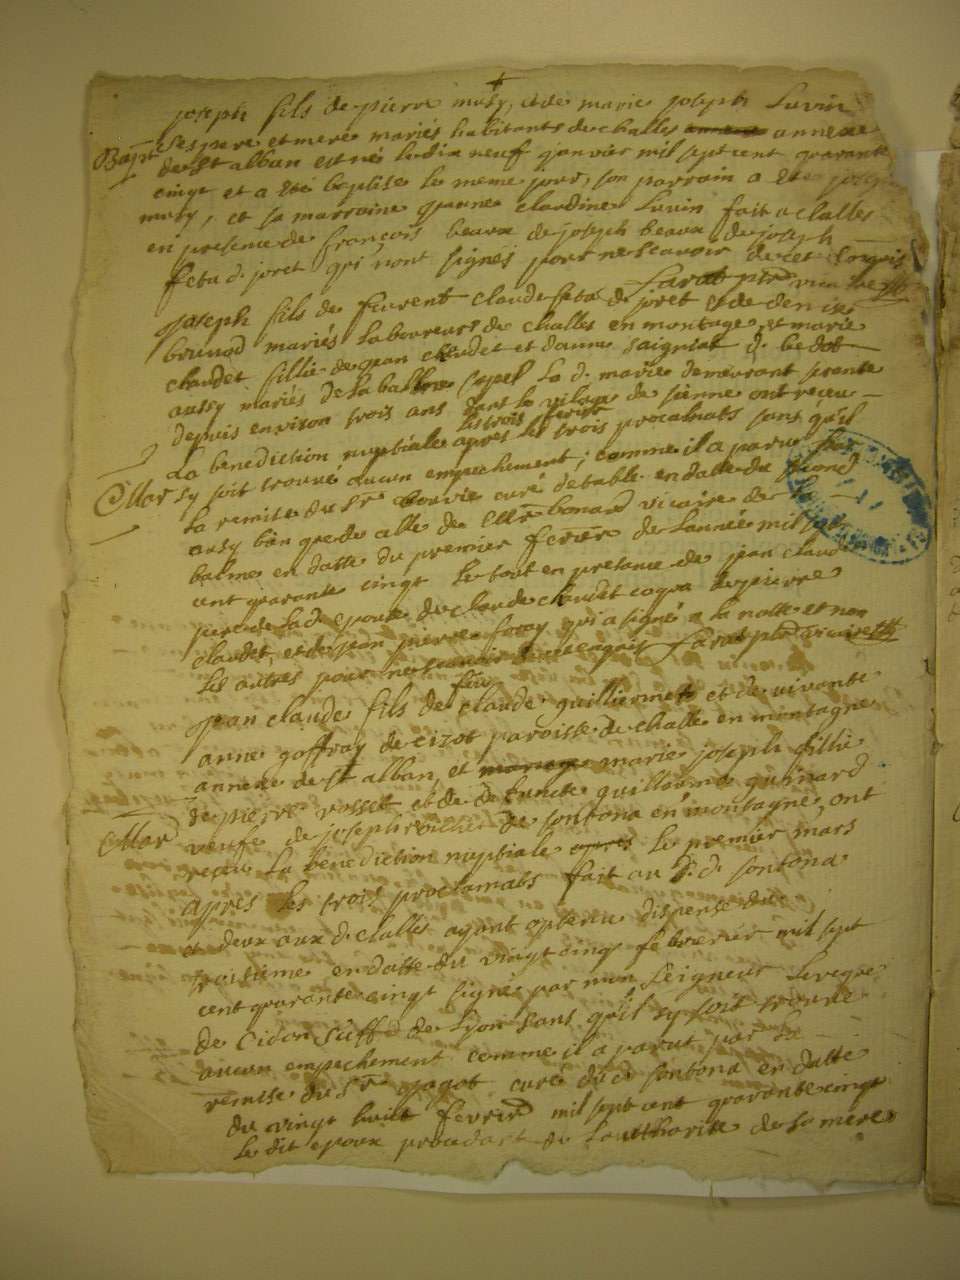 joseph fils de pierre musy, et de marie joseph Luvin
Bapt
ses pere et mere mariés habitants de challes annexe
de st alban est né le dix neuf janvier mil sept cent quarante
cinqt et a eté baptisé le meme jour, son parrain a eté joseph
musy, et sa marraine jeanne claudine Luvin fait a challes
en presence de françois beaux de joseph beaux de joseph
feta d. joret qui n'ont signés pour ne scavoir de ce enquis
vicaire
joseph fils de feu claude feta d. joret et de denise
brunod mariés laboureurs de challes en montagne, et marie
claudet fillie de jean claudet et d'anne saigniat d. bedot
aussy mariés de la balme la d. marie demeurant
depuis environ trois ans dans le vilage de sienne ont reçeu
les trois ferier
La benediction nuptiale apres les trois proclamats sans qu'il
Mar
sy soit trouvé aucun empechement; comme il a parut par
la remise du sr bouvie curé d'etable en datte du second
ausy bien que de celle de Mr bonard vicaire de la
balme en datte du premier ferier de l'année mil sept
cent quarante cinqt le tout en presence de jean claud
pere de la d. epouse, de claude claudet de pierre
claudet, et de jean pierre foray qui a signé a la notte et non
les autres pour ne scavoir de ce enquis vicaire
feu
jean claude fils de claude guilliermet et de vivante
anne goffray de cizot paroisse de challe en montagne
annexe de st alban, et marie joseph fillie
de pierre rosset et de defuncte guillauma guinard
Mar
veufe de joseph rochet de sontona en montagne, ont
reçeu la benediction nuptiale le premier mars
apres les trois proclamats fait au d. sontona
et deux aux d. challes ayant optenu dispense du
troisieme en datte du vingt cinq febverier mil sept
cent quarante cinqt signé par mon seigneur leveque
de sidon suff. de Lyon sans qu'il sy soit trouvé
aucun empechement comme il a parut par la
remise du sr jagot curé du d. sontona en datte
du vingt huict fevrier mil sept cent quarante cinqt
le dit epoux procedant de l'autharite de sa mere